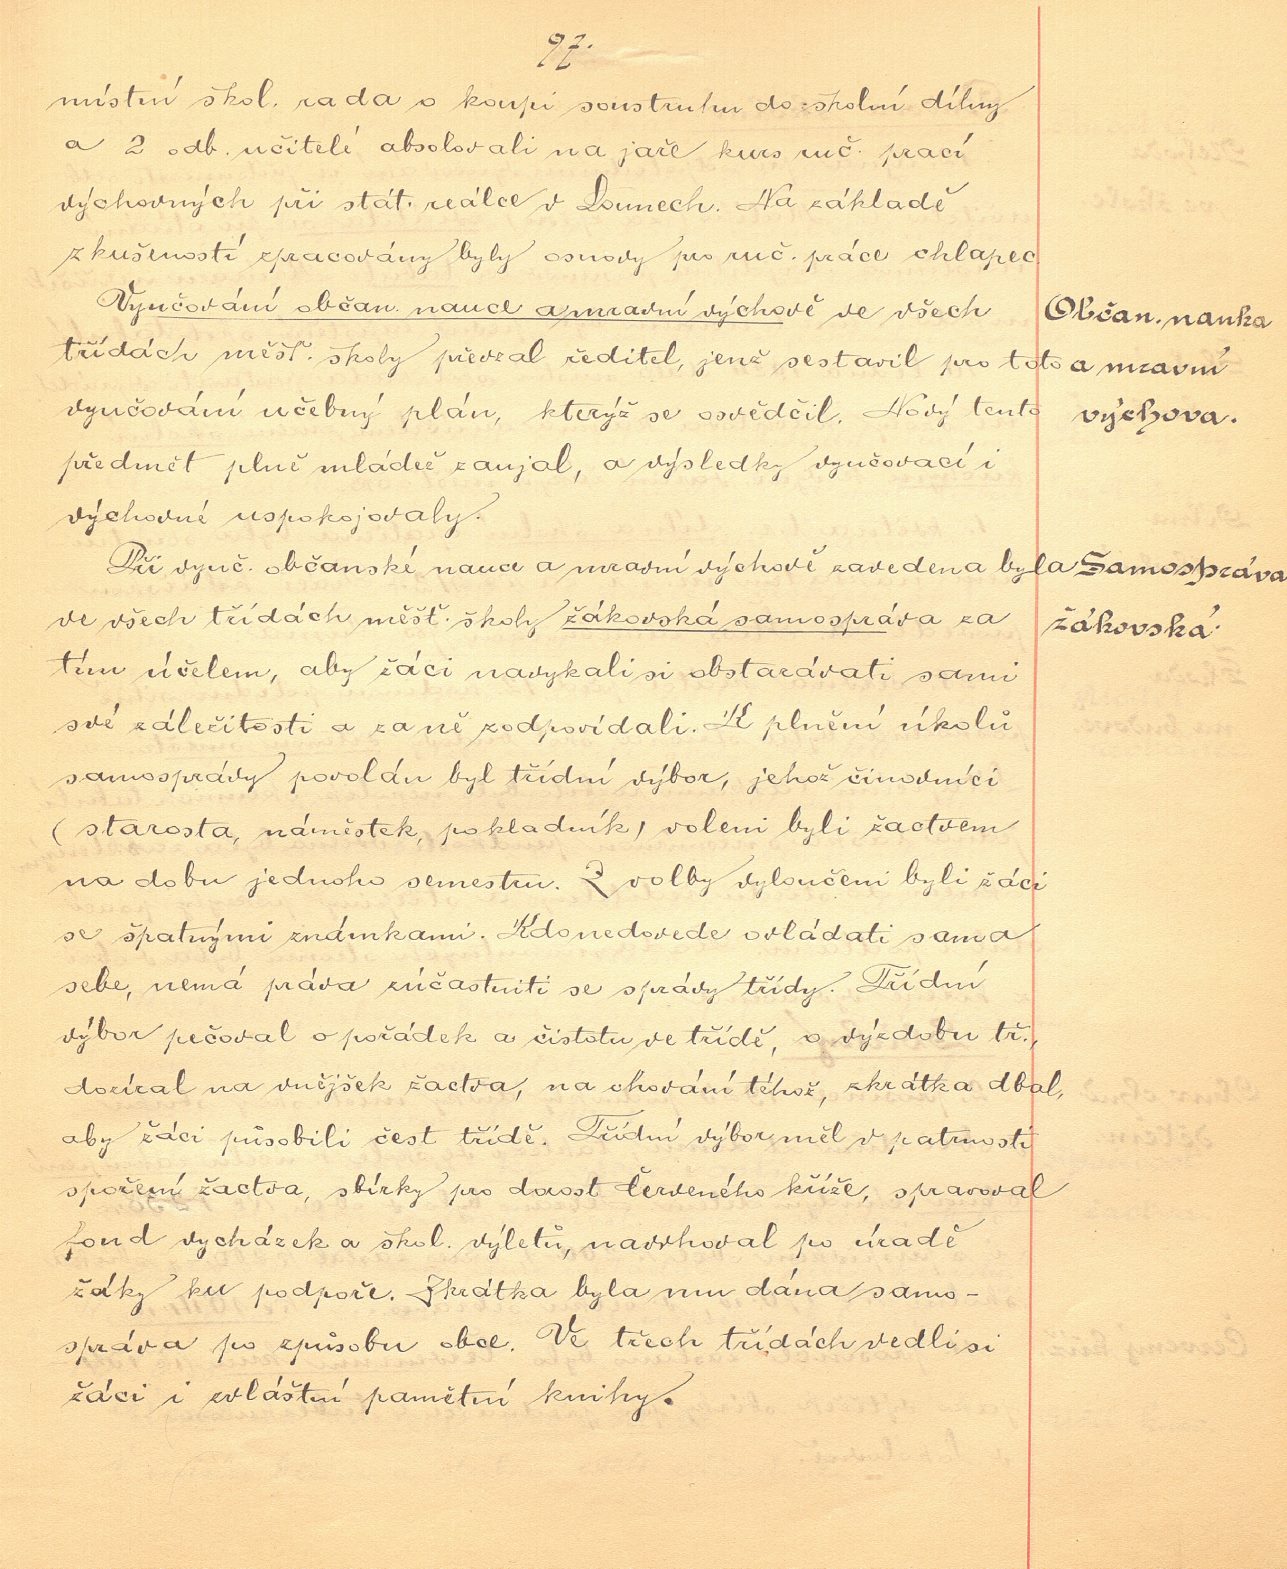 97.
místní škol. rada o koupi soustruhu do školní dílny
a 2 odb. učitelé absolovali na jaře kurs ruč. prací
výchovných při stát. reálce v Lounech. Na základě
zkušeností zpracovány byly osnovy pro ruč. práce chlapec
Vyučování občan. nauce a mravní výchově ve všech
Občan. nauka
třídách měšť. školy převzal ředitel, jenž sestavil pro toto
a mravní
vyučování učebný plán, kterýž se osvědčil. Nový tento
výchova.
předmět plně mládež zaujal, a výsledky vyučovací i
výchovné uspokojovaly.
Při vyuč. občanské nauce a mravní výchově zavedena byla
Samospráva
ve všech třídách měšť. školy žákovská samospráva za
žákovská.
tím účelem, aby žáci navykali si obstarávati sami
své záležitosti a za ně zodpovídali. K plnění úkolů
samosprávy povolán byl třídní výbor, jehož činovníci
(starosta, náměstek, pokladník) voleni byli žactvem
na dobu jednoho semestru. Z volby vyloučeni byli žáci
se špatnými známkami. Kdo nedovede ovládati sama
sebe, nemá práva zúčastniti se správy třídy. Třídní
výbor pečoval o pořádek a čistotu ve třídě, o výzdobu tř.,
dozíral na vnějšek žactva, na chování téhož, zkrátka dbal,
aby žáci působili čest třídě. Třídní výbor měl v patrnosti
spoření žactva, sbírky pro dorost Červeného kříže, spravoval
fond vycházek a škol. výletů, navrhoval po úradě
žáky ku podpoře. Zkrátka byla mu dána samo-
správa po způsobu obce. Ve třech třídách vedli si
žáci i zvláštní pamětní knihy.